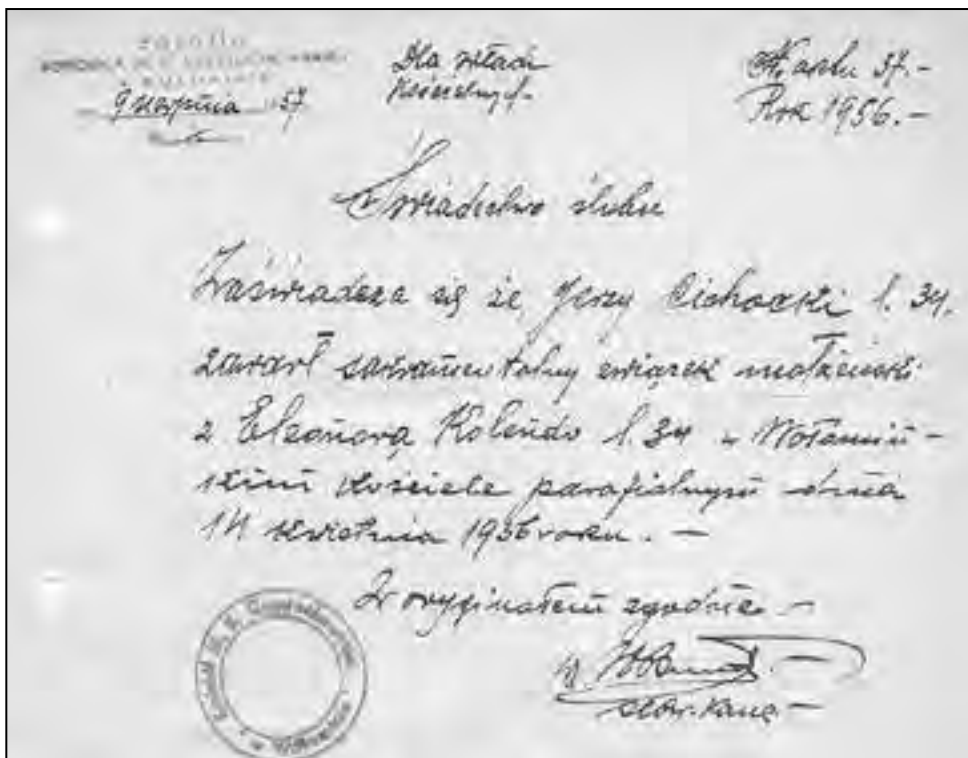 9 sierpnia 1957
Dla władz
kościelnych.
Nr. aktu 37.-
Rok 1956.-
Świadectwo ślubu
Zaświadcza się że Jerzy Cichocki l. 34.
zawarł sakramentalny związek małżeński
z Eleonorą Kolendo l. 34 w Wołomiń-
skim kościele parafialnym dnia
14 kwietnia 1956 roku. -
Z oryginałem zgodne. -